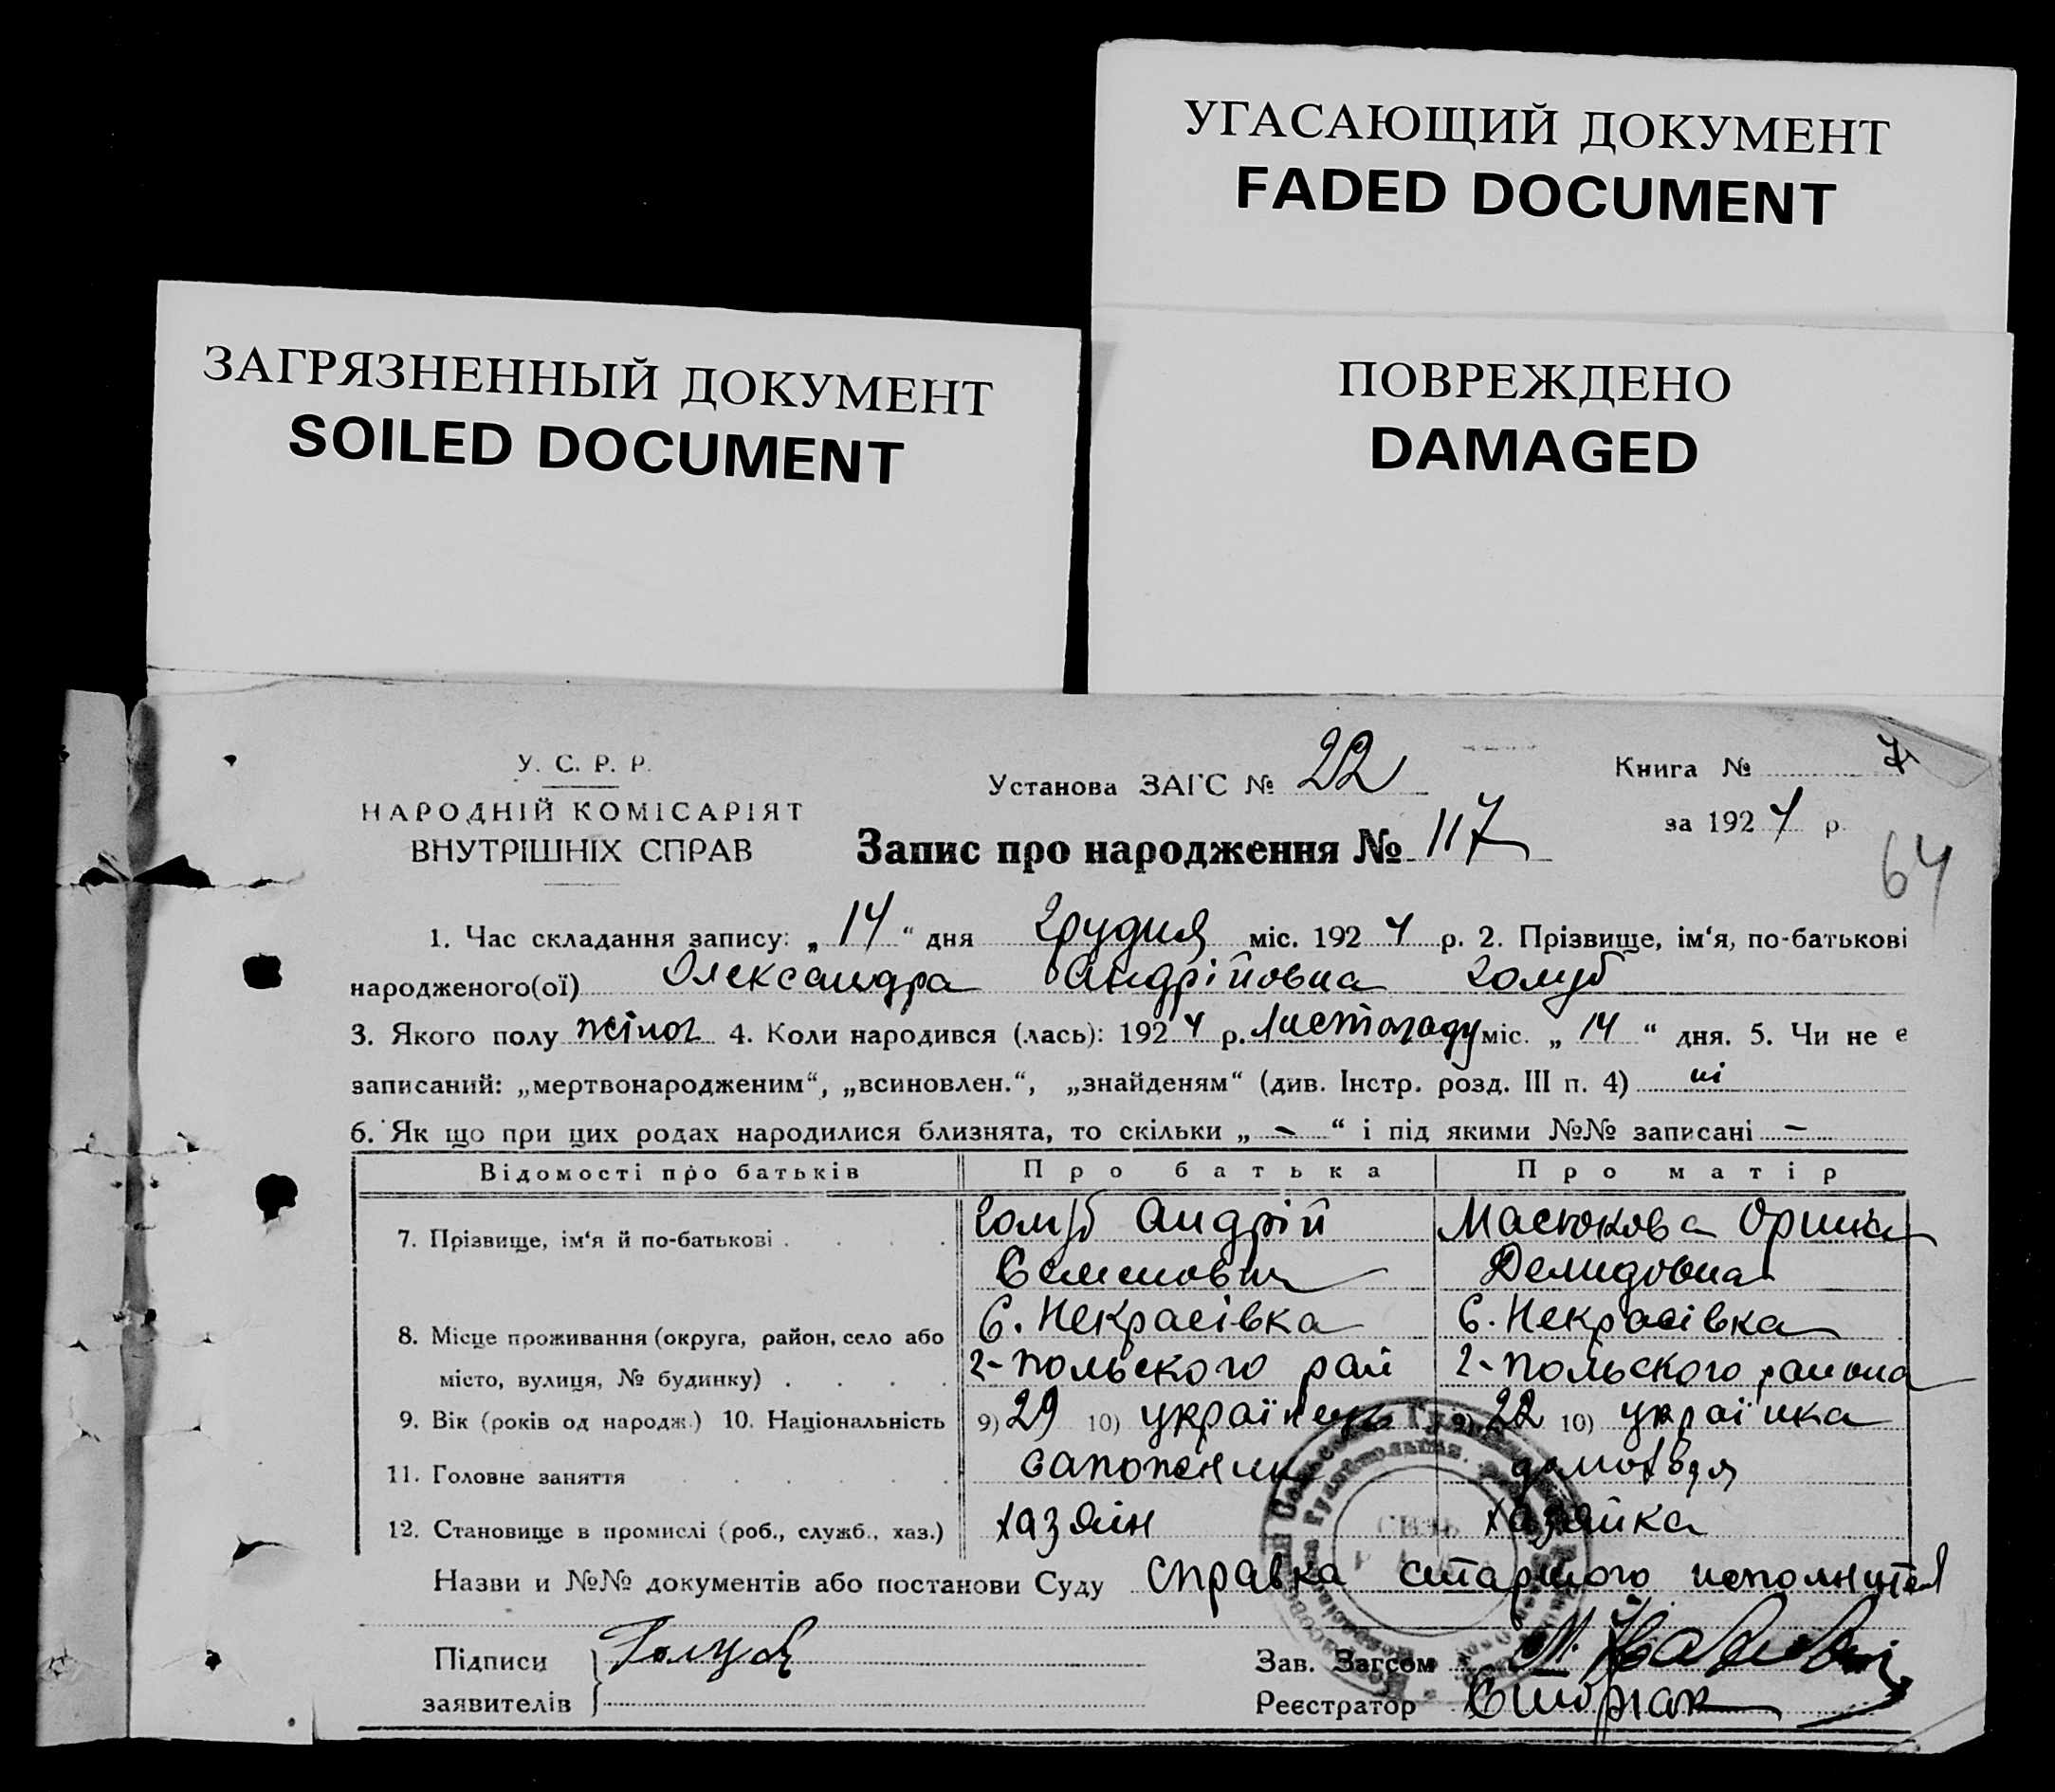 УГАСАЮЩИЙ ДОКУМЕНТ
FADED DOCUMENT
ЗАГРЯЗНЕННЫЙ ДОКУМЕНТ
SOILED DOCUMENT
ПОВРЕЖДЕНО
DAMAGED
У. С. Р. Р.
НАРОДНІЙ КОМІСАРІЯТ
ВНУТРІШНІХ СПРАВ
Установа ЗАГС № 22
Книга № 7
за 1924 р.
Запис про народження № 117
64
1. Час складання запису: „ 14 “ дня грудня міс. 1924 р. 2. Прізвище, ім‘я, по-батькові
народженого(ої) Олександра Андрійовна Голуб
3. Якого полу жіноч 4. Коли народився (лась): 1924 р. листопаду міс. „ 14 “ дня. 5. Чи не є
записаний: „мертвонародженим“, „всиновлен.“, „знайденям“ (див. Інстр. розд. III п. 4) ні
6. Як що при цих родах народилися близнята, то скільки „ - “ і під якими №№ записані -
Відомості про батьків Про батька Про матір
7. Прізвище, ім‘я й по-батькові . . . . Голуб Андрій Масюкова Орина
Семенович Демидовна
8. Місце проживання (округа, район, село або С. Некрасівка С. Некрасівка
місто, вулиця, № будинку) . . . . Г-Польского рай Г-Польского района
9. Вік (років од народж.) 10. Національність 9) 29 10) українець 9) 22 10) українка
11. Головне заняття . . . . сапожник
12. Становище в промислі (роб., служб., хаз.) хазяін хазяйка
Назви и №№ документів або постанови Суду справка старшого исполнителя
Підписи Голуб Зав. Загсом
заявителів Реєстратор